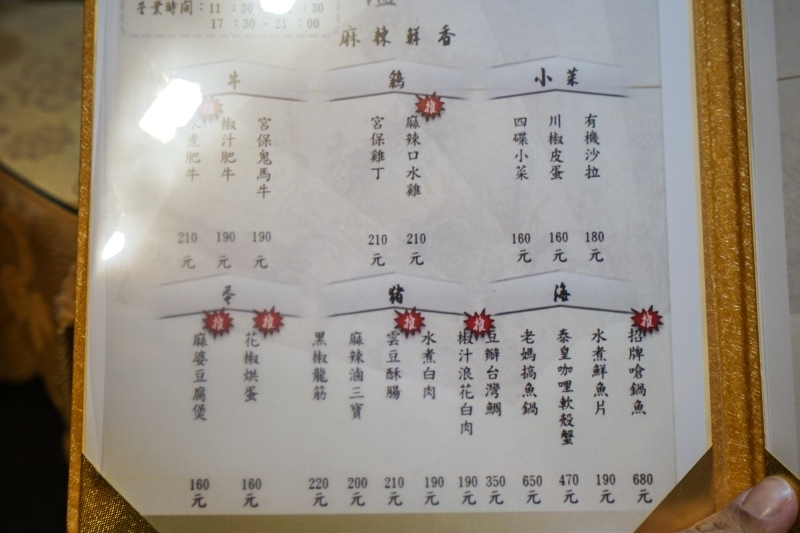 營業時間：11：30 - 
17：30 - 21：00
麻辣鮮香
小菜
有機沙拉 180元
川椒皮蛋 160元
四碟小菜 160元
鷄
麻辣口水雞 210元
推
宮保雞丁 210元
牛
宮保鬼馬牛 190元
椒汁肥牛 190元
水煮肥牛 210元
推
海
招牌嗆鍋魚 680元
推
水煮鮮魚片 190元
泰皇咖哩軟殼蟹 470元
老媽搞魚鍋 650元
豆瓣台灣鯛 350元
推
豬
椒汁浪花白肉 190元
水煮白肉 190元
雲豆酥腸 210元
推
麻辣滷三寶 200元
黑椒龍筋 220元
花椒烘蛋 160元
推
麻婆豆腐煲 160元
推